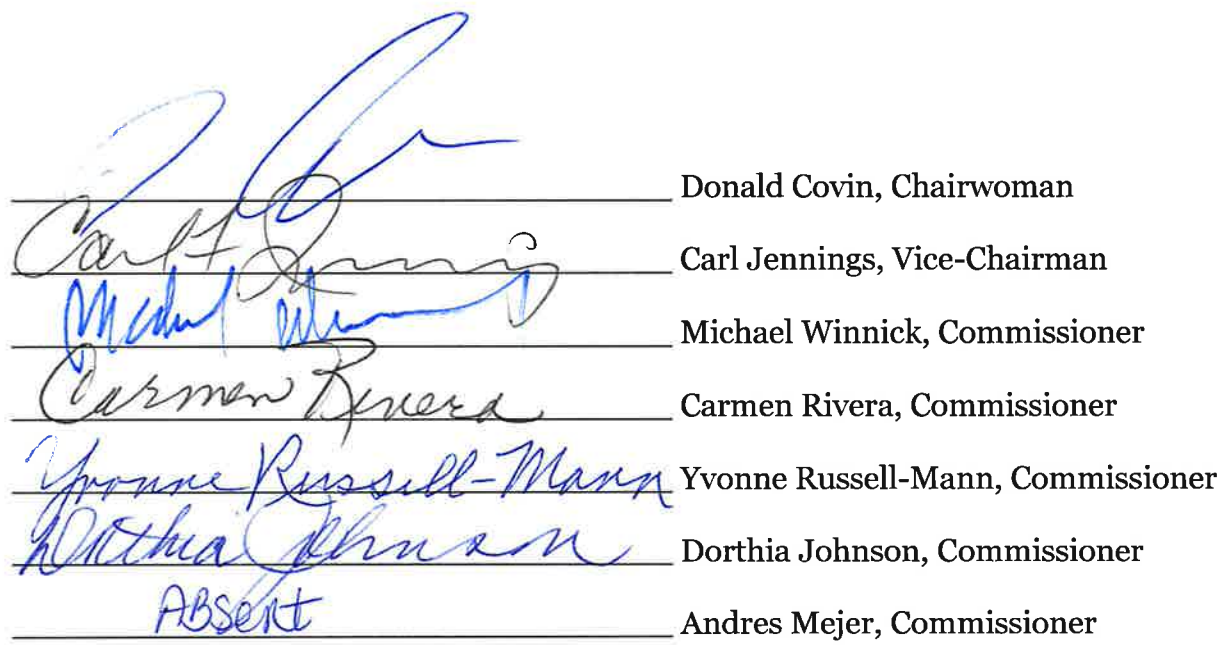 Donald Covin, Chairwoman
Carl F Jennings Carl Jennings, Vice-Chairman
Michael Winnick Michael Winnick, Commissioner
Carmen Rivera Carmen Rivera, Commissioner
Yvonne Russell-Mann Yvonne Russell-Mann, Commissioner
Dorthia Johnson Dorthia Johnson, Commissioner
ABSENT Andres Mejer, Commissioner